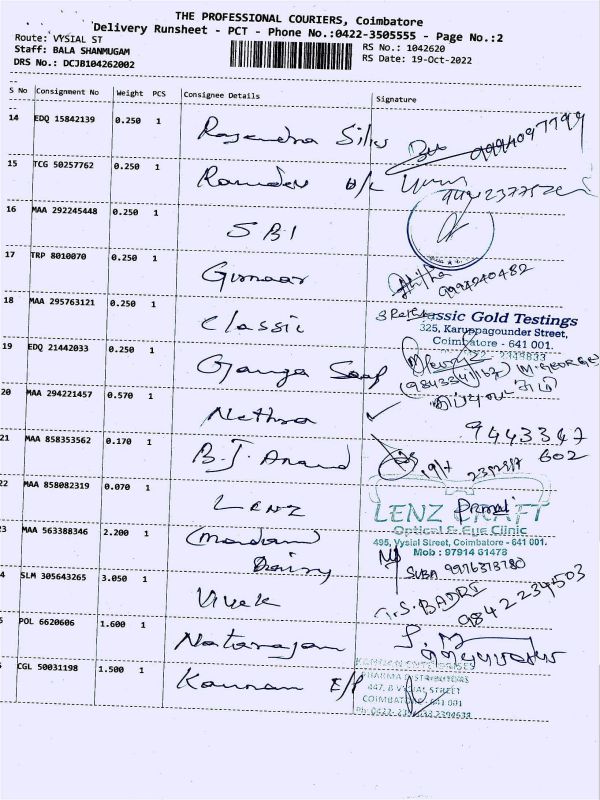 THE PROFESSIONAL COURIERS, Coimbatore
Delivery Runsheet - PCT - Phone No.:0422-3505555 - Page No.:2
Route: VYSIAL ST
Staff: BALA SHANMUGAM
DRS No.: DCJB104262002
RS No.: 1042620
RS Date: 19-Oct-2022
S No Consignment No Weight PCS Consignee Details Signature
14 EDQ 15842139 0.250 1 Rajendra Silks
15 TCG 50257762 0.250 1 Ramdev
16 MAA 292245448 0.250 1 SBI
17 TRP 8010070 0.250 1 Girnaar 9994240482
18 MAA 295763121 0.250 1 Classic
Classic Gold Testings
325, Karuppagounder Street,
Coimbatore - 641 001.
19 EDQ 21442033 0.250 1 Ganga (M. GEORGE)
20 MAA 294221457 0.570 1 Nethra
9443347
602
21 MAA 858353562 0.170 1 B.J. Anand
22 MAA 858082319 0.070 1 LENZ
LENZ CRAFT
Optical & Eye Clinic
495, Vysial Street, Coimbatore - 641 001.
Mob : 97914 61478
23 MAA 563388346 2.200 1 (Mandam) Dairy
SUBA 9976373780
24 SLM 305643265 3.050 1 Vivek T.S. BADRI
9842234503
25 POL 6620606 1.600 1 Natarajan
26 CGL 50031198 1.500 1 Kannan E/P
KANNAN ENTERPRISES
PHARMA DISTRIBUTORS
447, B VYSIAL STREET
COIMBATORE - 641 001